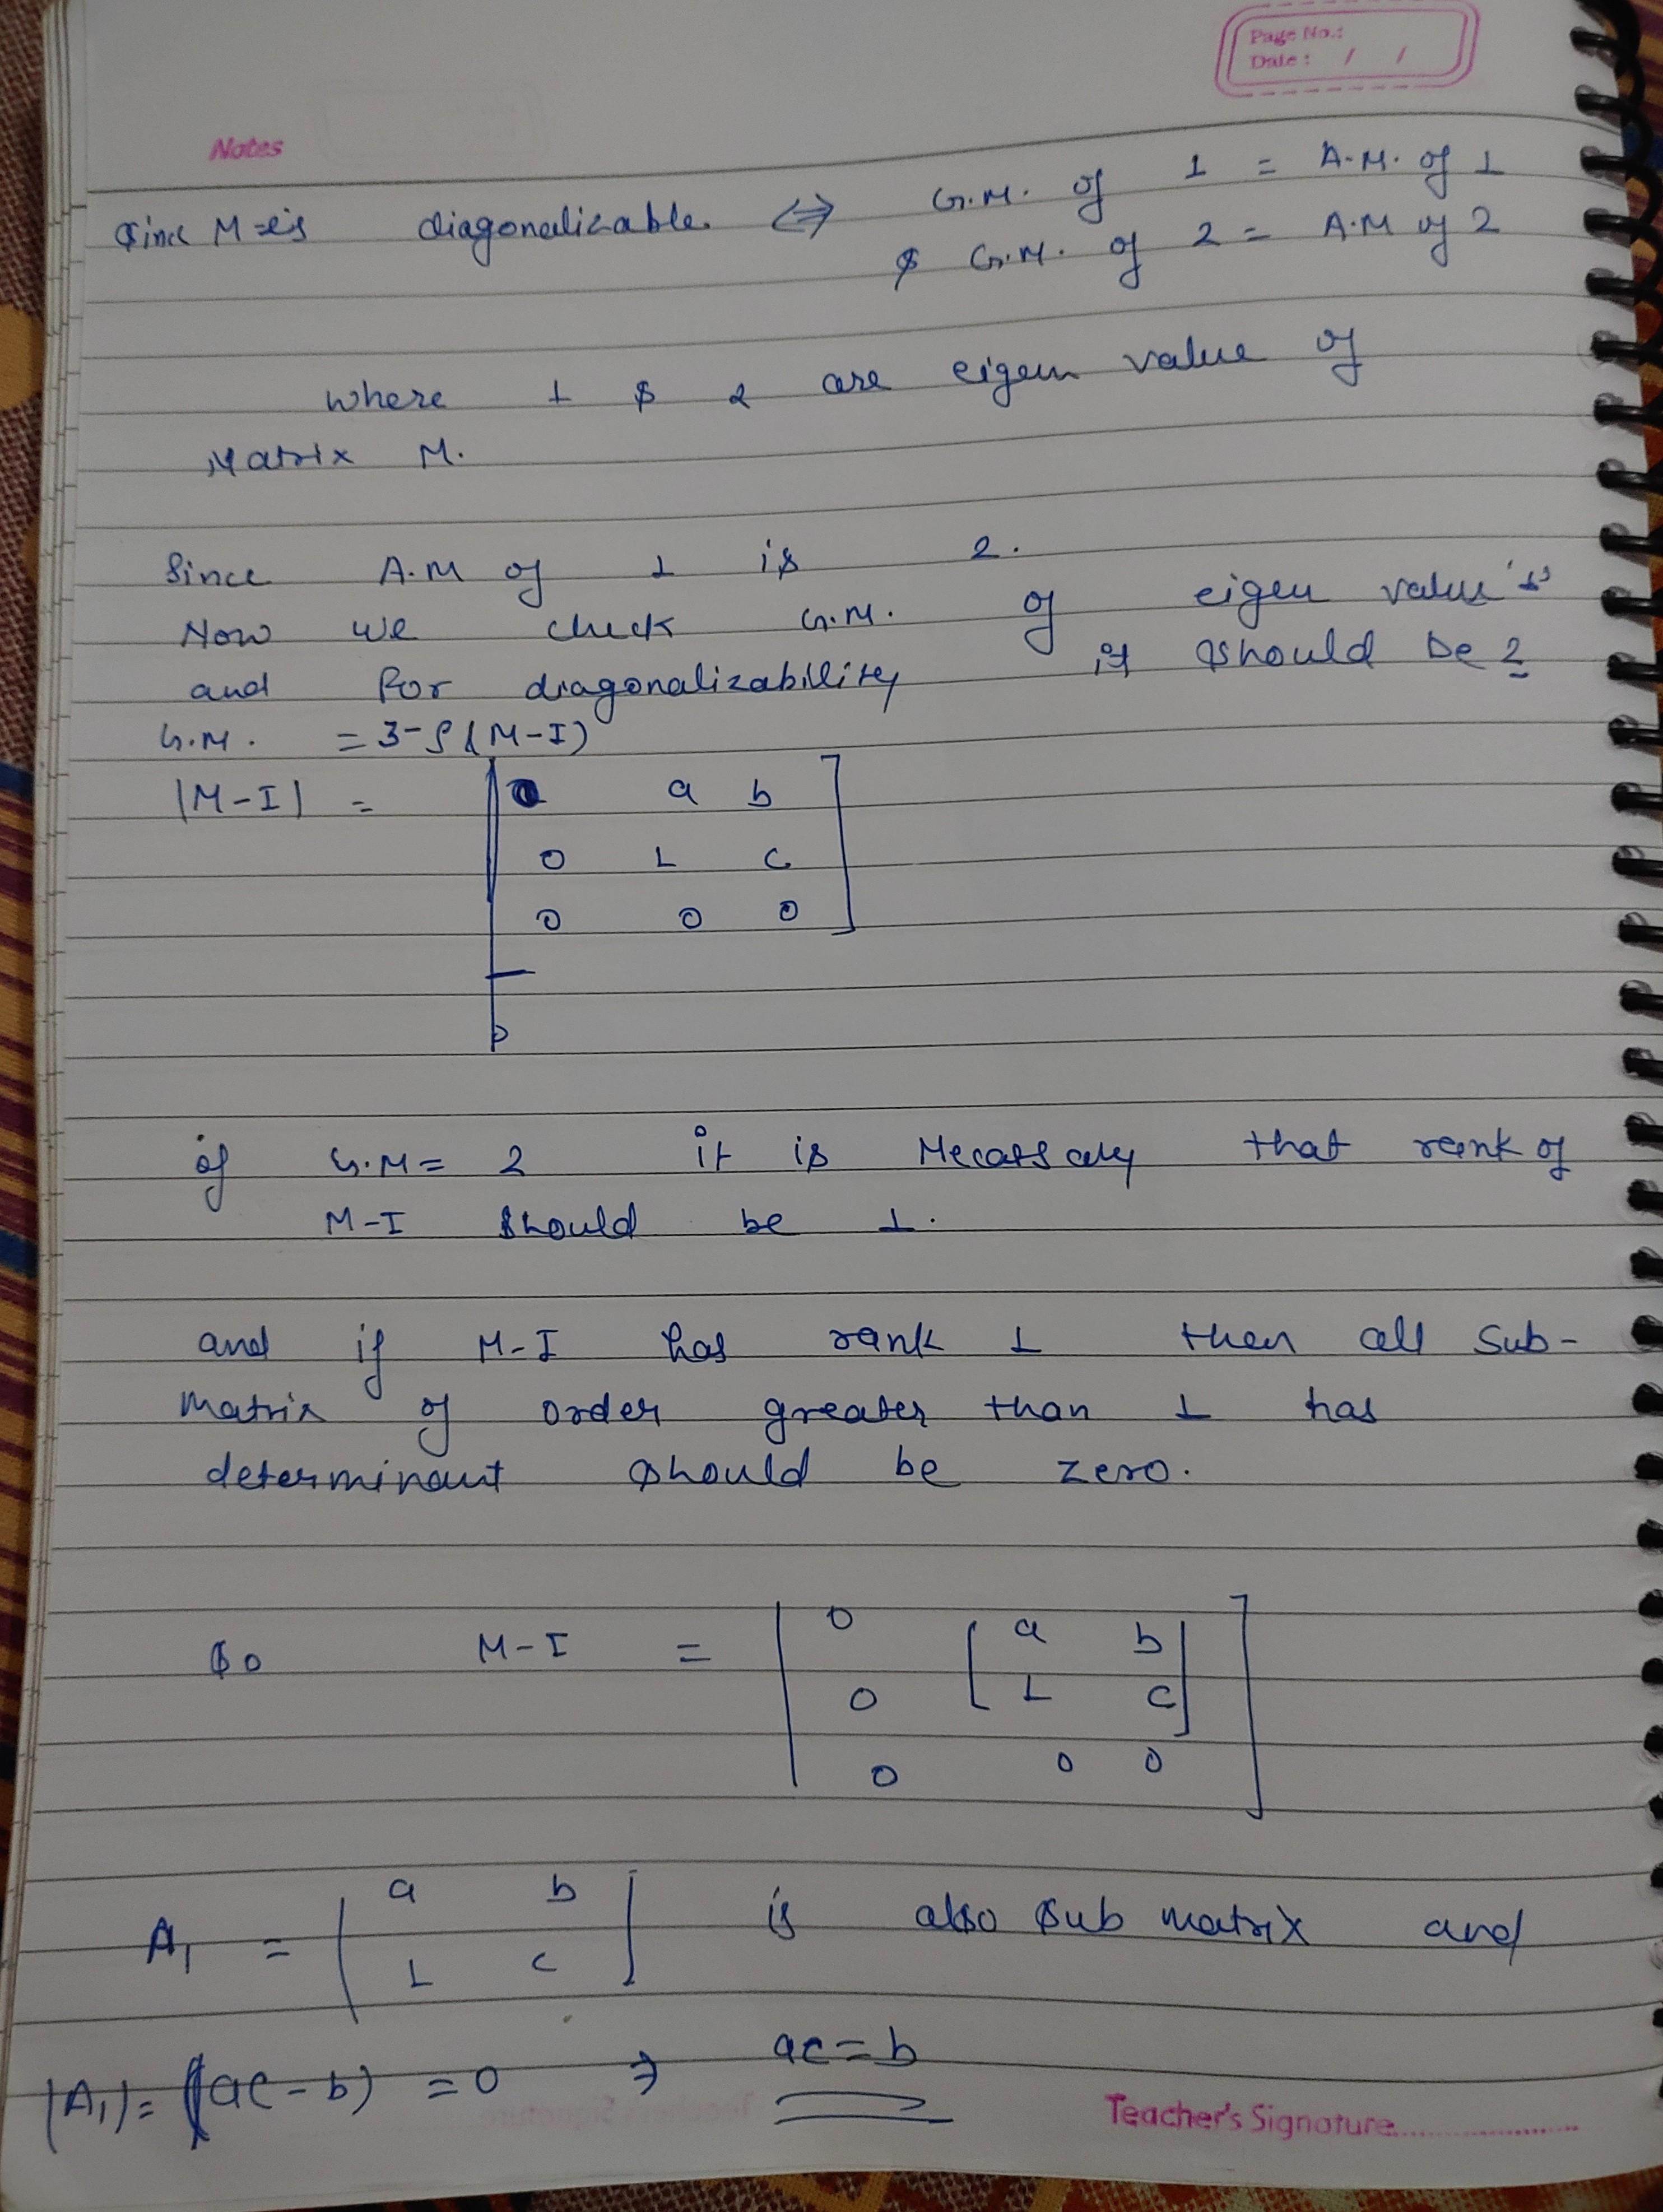 Page No.:
Date: / /
Notes
Since M is diagonalizable. ⇔ G.M. of 1 = A.M. of 1
& G.M. of 2 = A.M of 2
where 1 & 2 are eigen value of
Matrix M.
Since A.M of 1 is 2.
Now we check G.M. of eigen value '1'
and for diagonalizability it should be 2
G.M. = 3-ρ(M-I)
|M-I| = [0 a b
0 1 c
0 0 0]
if G.M= 2 it is that rank of
M-I should be 1.
and if M-I has rank 1 then all sub-
matrix of order greater than 1 has
determinant should be zero.
So M-I = [0 [a b
0 1 c]
0 0 0]
A₁ = [a b
1 c] is also sub matrix and
|A₁|= (ac-b) =0 ⇒ ac=b
Teacher's Signature....................